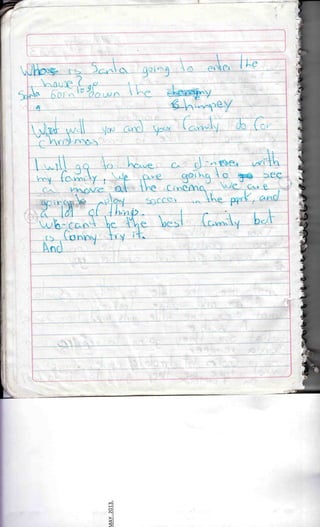 is Santa going to enter the
house?
Santa going to down the
chimpey
What will you and your family do for
christmas
I will go to have a dinner with
my family, we are going to see
a movie at the cinema, we are
going to play soccer in the park, and
a lot of things.
we can't be the best family but
is funny try it.
And
MAY 2013